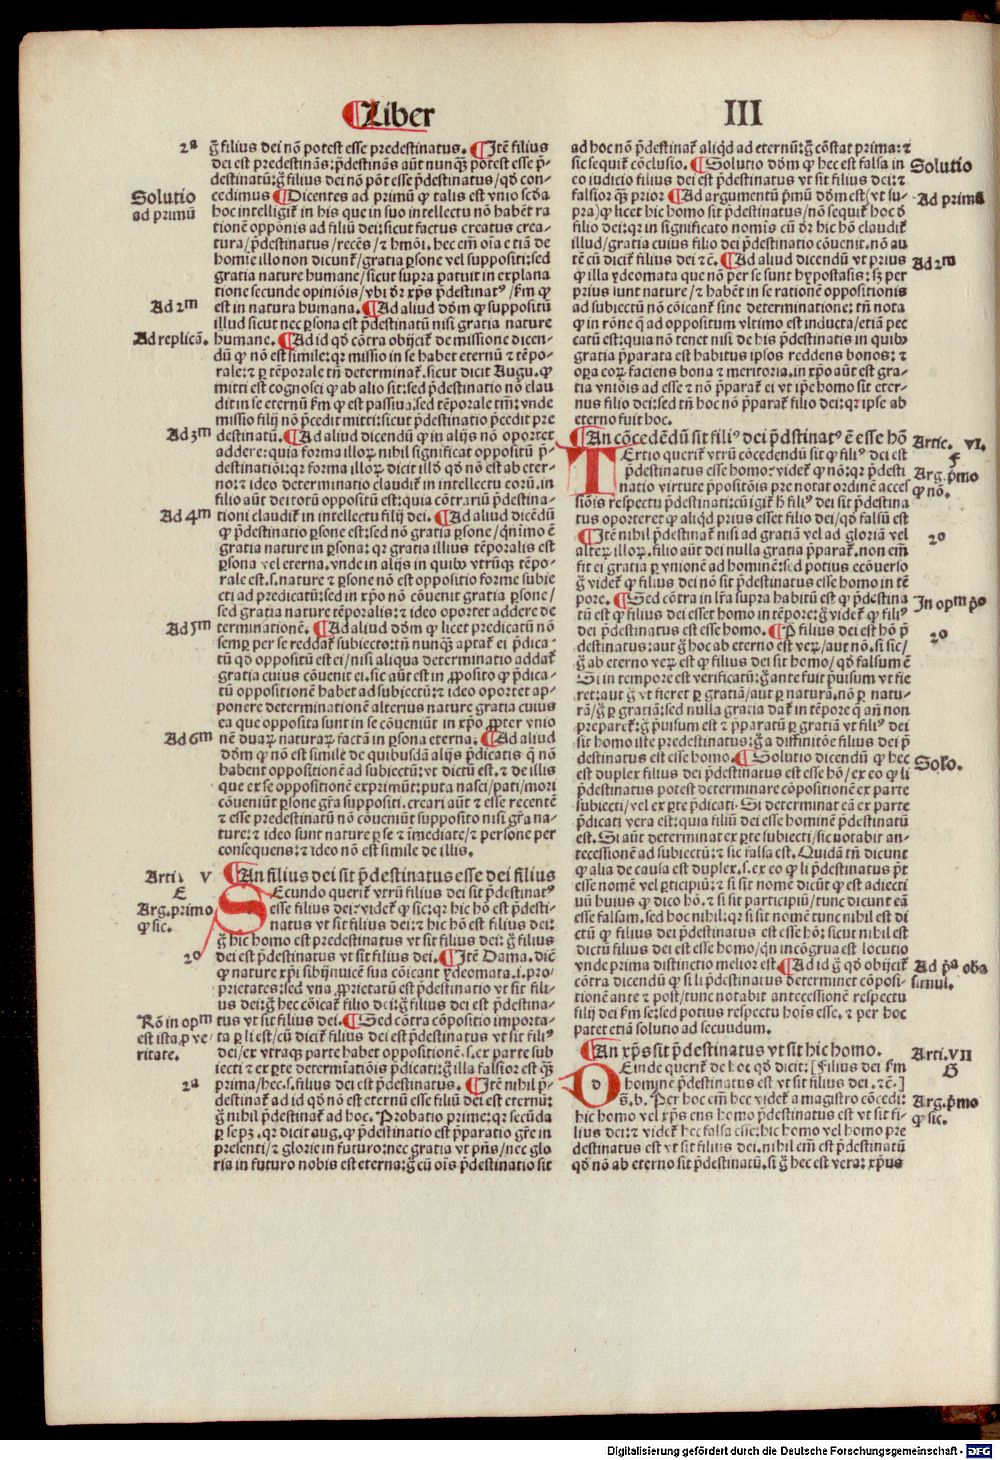 ¶Liber III
2ª
g̃ filius dei nõ potest esse predestinatus. ¶Itẽ filius
dei est predestinãs: p̃destinãs aũt nunq̃ȝ potest esse p̃-
destinatũ: g̃ filius dei nõ põt esse p̃destinatus/qd̃ con-
Solutio
ad primũ
cedimus ¶Dicentes ad primũ ꝙ talis est vnio scd̃a
hoc intelligit̃ in his que in suo intellectu nõ habẽt ra
tionẽ opponis ad filiũ dei: sicut factus creatus crea-
tura/p̃destinatus/recẽs/⁊ hmõi. hec em̃ oĩa etiã de
homiẽ illo non dicunt̃/gratia p̃sone vel suppositi: sed
gratia nature humane/sicut supra patuit in explana
tione secunde opiniõis/vbi dr̃ xp̃s p̃destinatꝰ/f̃m ꝙ
Ad 2ᵐ
est in natura humana. ¶Ad aliud dõm ꝙ suppositũ
illud sicut nec p̃sona est p̃destinatũ nisi gratia nature
Ad replicã.
humane. ¶Ad id g̃ cõtra obijcit̃ de missione dicen-
dũ ꝙ nõ est simile: qr missio in se habet eternũ ⁊ tẽpo-
rale: ⁊ p̱ tẽporale tñ determinat̃. sicut dicit Augu. ꝙ
mitti est cognosci ꝙ ab alio sit: sed p̃destinatio nõ clau
dit in se eternũ f̃m ꝙ est passiua. sed tẽporale tm̃: vnde
missio filij nõ p̃cedit mitti: sicut p̃destinatio p̃cedit pre
Ad 3ᵐ
destinatũ. ¶Ad aliud dicendũ ꝙ in alijs nõ oportet
addere: quia forma illoꝝ nihil significat oppositũ p̃-
destinatiõi: qr forma illoꝝ dicit illd̃ qd̃ nõ est ab eter-
no: ⁊ ideo determinatio claudit̃ in intellectu eorũ. in
filio aũt dei totũ oppositũ est: quia cõtrariũ p̃destina-
Ad 4ᵐ
tioni claudit̃ in intellectu filij dei. ¶Ad aliud dicẽdũ
ꝙ p̃destinatio p̃sone est: sed nõ gratia p̃sone/q̃nimo ẽ
gratia nature in p̃sona: qr gratia illius tẽporalis est
p̃sona vel eterna. vnde in alijs in quibꝰ vtrũqȝ tẽpo-
rale est. s. nature ⁊ p̃sone nõ est oppositio forme subie
cti ad predicatũ: sed in xp̃o nõ cõuenit gratia p̃sone/
sed gratia nature tẽporalis: ⁊ ideo oportet addere de
Ad 5ᵐ
terminationẽ. ¶Ad aliud dõm ꝙ licet predicatũ nõ
semp̱ per se reddat̃ subiecto: tñ nunqȝ aptat̃ ei p̃dica-
tũ qd̃ oppositũ est ei/nisi aliqua determinatio addat̃
gratia cuius cõuenit ei. sic aũt est in ꝓposito ꝙ p̃dica-
tũ oppositionẽ habet ad subiectũ: ⁊ ideo oportet ap-
ponere determinationẽ alterius nature gratia cuius
ea que opposita sunt in se cõueniũt in xp̃o ꝓpter vnio
Ad 6ᵐ
nẽ duaꝝ naturaꝝ factã in p̃sona eterna. ¶Ad aliud
dõm ꝙ nõ est simile de quibusdã alijs p̃dicatis q̃ nõ
habent oppositionẽ ad subiectũ: vt dictũ est. ⁊ de illis
que ex se oppositionẽ exprimũt: puta nasci/pati/mori
cõueniũt p̱sone gr̃a suppositi. creari aũt ⁊ esse recentẽ
⁊ esse predestinatũ nõ cõueniũt supposito nisi gr̃a na-
ture: ⁊ ideo sunt nature p̱ se ⁊ ĩmediate/⁊ persone per
consequens: ⁊ ideo nõ est simile de illis.
Arti. V
E
¶An filius dei sit p̃destinatus esse dei filius
Arg. primo
ꝙ sic.
Secundo querit̃ vtrũ filius dei sit p̃destinatꝰ
esse filius dei: videt̃ ꝙ sic: qr hic hõ est p̃desti-
natus vt sit filius dei: ⁊ hic hõ est filius dei:
g̃ hic homo est predestinatus vt sit filius dei: g̃ filius
2º
dei est p̃destinatus vt sit filius dei. ¶Itẽ Dama. dicit̃
ꝙ nature xp̃i sibijnuicẽ sua cõicant ydeomata. i. pro-
prietates: sed vna ꝓprietatũ est p̃destinatio vt sit fili-
us dei: g̃ hec cõicat̃ filio dei: g̃ filius dei est p̃destina-
Rõ in opᵐ
est ista pro ve
ritate.
tus vt sit filius dei. ¶Sed cõtra cõpositio importa-
ta p̱ li est/cũ dicit̃ filius dei est p̃destinatus vt sit filiꝰ
dei/ex vtraqȝ parte habet oppositionẽ. s. ex parte sub
iecti ⁊ ex p̱te determĩatiõis p̃dicati: g̃ illa falsior est q̃ȝ
2ª
prima/hec. s. filius dei est p̃destinatus. ¶Itẽ nihil p̃-
destinat̃ ad id qd̃ nõ est eternũ esse filiũ dei est eternũ:
g̃ nihil p̃destinat̃ ad hoc. Probatio prime: qr secũda
p̱ se pȝ. qr dicit aug. ꝙ p̃destinatio est p̃paratio gr̃e in
presenti/⁊ glorie in futuro: nec gratia vt pñs/nec glo
ria in futuro nobis est eterna: g̃ cũ oĩs p̃destinatio sit
ad hoc nõ p̃destinat̃ aliqd̃ ad eternũ: g̃ cõstat prima: ⁊
Solutio
sic sequit̃ cõclusio. ¶Solutio dõm ꝙ hec est falsa in
eo iudicio filius dei est p̃destinatus vt sit filius dei: ⁊
Ad primũ
falsior q̃ȝ prior ¶Ad argumentũ p̃mũ dõm est (vt su-
pra) ꝙ licet hic homo sit p̃destinatus/nõ sequit̃ hoc d̃
filio dei: qr in significato nomĩs cũ dr̃ hic hõ claudit̃
illud/gratia cuius filio dei p̃destinatio cõuenit. nõ au
Ad 2ᵐ
tẽ cũ dicit̃ filius dei ⁊c̃. ¶Ad aliud dicendũ vt prius
ꝙ illa ydeomata que nõ per se sunt hypostasis: sȝ per
prius sunt nature/⁊ habẽt in se rationẽ oppositionis
ad subiectũ nõ cõicant̃ sine determinatione: tñ nota
ꝙ in rõne q̃ ad oppositum vltimo est inducta/etiã pec
catũ est: quia nõ tenet nisi de his p̃destinatis in quibꝰ
gratia p̃parata est habitus ipsos reddens bonos: ⁊
oꝑa eoꝝ faciens bona ⁊ meritoria. in xp̃o aũt est gra-
tia vniõis ad esse ⁊ nõ p̃parat̃ ei vt ip̃e homo sit eter-
nus filio dei: sed tñ hoc nõ p̃parat̃ filio dei: qr ipse ab
eterno fuit hoc.
Artic. VI.
F
¶An cõcedẽdũ sit filiꝰ dei p̃dstinatꝰ ẽ esse hõ
Arg. p̃mo
ꝙ nõ.
Tertio querit̃ vtrũ cõcedendũ sit ꝙ filiꝰ dei est
p̃destinatus esse homo: videt̃ ꝙ nõ: qr p̃desti
natio virtute p̃positõis pre notat ordinẽ acces
siõis respectu p̃destinati: cũ igit̃ h̃ filiꝰ dei sit p̃destina
tus oporteret ꝙ aliqd̃ prius esset filio dei/qd̃ falsũ est
2º
¶Itẽ nihil p̃destinat̃ nisi ad gratiã vel ad gloriã vel
alteꝝ illoꝝ. filio aũt dei nulla gratia p̃parat̃. non em̃
fit ei gratia p̱ vnionẽ ad hominẽ: sed potius ecõuerso
g̃ videt̃ ꝙ filius dei nõ sit p̃destinatus esse homo in tẽ
In opᵐ p̃º
pore. ¶Sed cõtra in lr̃a supra habitũ est ꝙ p̃destina
tũ est ꝙ filius dei esset homo in tẽpore: g̃ videt̃ ꝙ filiꝰ
2º
dei p̃destinatus est esse homo. ¶P̃ filius dei est hõ p̃
destinatus: aut g̃ hoc ab eterno est veꝝ/aut nõ. si sic/
g̃ ab eterno veꝝ est ꝙ filius dei sit homo/qd̃ falsum ẽ
Si in tempore est verificatũ: g̃ ante fuit p̃uisum vt fie
ret: aut g̃ vt fieret p̱ gratiã/aut p̱ naturã. nõ p̱ natu-
rã/g̃ p̱ gratiã: sed nulla gratia dat̃ in tẽpore q̃ añ non
preparet̃: g̃ p̃uisum est ⁊ p̃paratũ p̱ gratiã vt filiꝰ dei
sit homo iste predestinatus: g̃ a diffinitõe filius dei p̃
Solo.
destinatus est esse homo. ¶Solutio dicendũ ꝙ hec
est duplex filius dei p̃destinatus est esse hõ/ex eo ꝙ li
p̃destinatus potest determinare cõpositionẽ ex parte
subiecti/vel ex p̱te p̃dicati. Si determinat eã ex parte
p̃dicati vera est: quia filiũ dei esse hominẽ p̃destinatũ
est. Si aũt determinat ex p̱te subiecti/sic notabit an-
tecessionẽ ad subiectũ: ⁊ sic falsa est. Quidã tñ dicunt
ꝙ alia de causa est duplex. s. ex eo ꝙ li p̃destinatus p̃t
esse nomẽ vel p̱ticipiũ: ⁊ si sit nomẽ dicũt ꝙ est adiecti
uũ huius ꝙ dico hõ. ⁊ si sit participiũ/tunc dicunt eã
esse falsam. sed hoc nihil: qr si sit nomẽ tunc nihil est di
ctũ ꝙ filius dei p̃destinatus est esse hõ: sicut nihil est
dictũ filius dei est esse homo/q̃n incõgrua est locutio
Ad p̃ª oba
simul.
vnde prima distinctio melior est. ¶Ad id g̃ qd̃ obijcit̃
cõtra dicendũ ꝙ si li p̃destinatus determinet cõposi-
tionẽ ante ⁊ post/tunc notabit antecessionẽ respectu
filij dei f̃m se: sed potius respectu hoĩs esse. ⁊ per hoc
patet etiã solutio ad secundum.
Arti. VII
G
¶An xp̃s sit p̃destinatus vt sit hic homo.
Arg. p̃mo
ꝙ sic.
Deinde querit̃ de hoc qd̃ dicit: [Filius dei f̃m
hominẽ p̃destinatus est vt sit filius dei. ⁊c̃.]
G̃. b. Per hoc em̃ hec videt̃ a magistro cõcedi:
hic homo vel xp̃s ens homo p̃destinatus est vt sit fi-
lius dei: ⁊ videt̃ hec falsa esse: hic homo vel homo pre
destinatus est vt sit filius dei. nihil em̃ est p̃destinatũ
qd̃ nõ ab eterno sit p̃destinatũ. si g̃ hec est vera: xp̃us
Digitalisierung gefördert durch die Deutsche Forschungsgemeinschaft - DFG